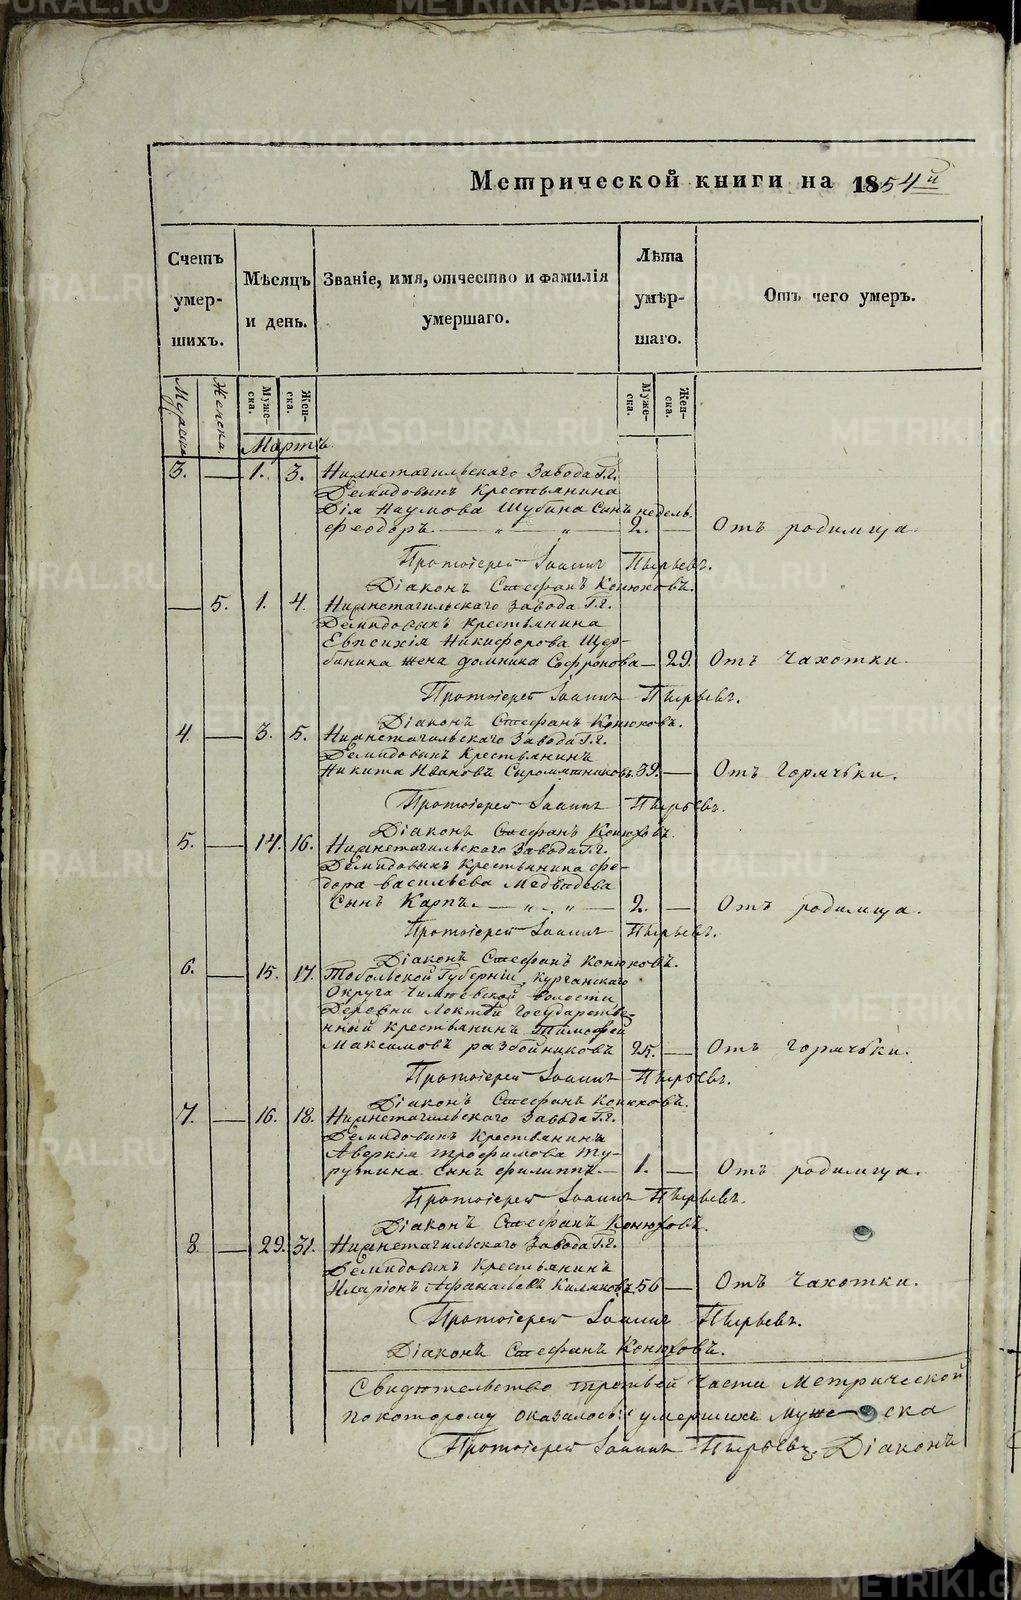 Метрической книги на 1854й
Счетъ умер-шихъ.
Мѣсяцъ и день.
Званіе, имя, отчество и фамилія умершаго.
Лѣта умѣр-шаго.
Отъ чего умеръ.
Мужеска Женска Муже-ска. Жен-ска. Муже-ска. Жен-ска.
Мартъ
3. — 1. 3. Нижнетагильскаго Завода Г.г.
Демидовыхъ Крестьянина
Наумова Шубина Сынъ недель.
Феодоръ — „ — „ — 2. — Отъ родимца.
Протоіерей Іоаннъ Пырьевъ.
Діаконъ Стефанъ Конюховъ.
— 5. 1. 4. Нижнетагильскаго Завода Г.г.
Демидовыхъ крестьянина
Евпсихія Никифорова Щер-
бинина жена Домника Софронова — 29. Отъ Чахотки.
Протоіерей Іоаннъ Пырьевъ.
Діаконъ Стефанъ Конюховъ.
4. — 3. 5. Нижнетагильскаго Завода Г.г.
Демидовыхъ Крестьянинъ
Никита Ивановъ Сыромятниковъ 39. — Отъ Горячьки.
Протоіерей Іоаннъ Пырьевъ.
Діаконъ Стефанъ Конюховъ.
5. — 14. 16. Нижнетагильскаго Завода Г.г.
Демидовыхъ Крестьянина Фе-
дора Васильева Медвѣдева
Сынъ Карпъ. — „ . „ — 2. — Отъ родимца.
Протоіерей Іоаннъ Пырьевъ.
Діаконъ Стефанъ Конюховъ.
6. — 15. 17. Тобольской Губерніи, Курганскаго
Округа Волости
Деревни Государстве-
нный крестьянинъ Тимофей
Максимовъ разбойниковъ 25. — Отъ Горячьки.
Протоіерей Іоаннъ Пырьевъ.
Діаконъ Стефанъ Конюховъ.
7. — 16. 18. Нижнетагильскаго Завода Г.г.
Демидовыхъ Крестьянинъ
Аверкія Трофимова Ту-
руткина сынъ Филиппъ — 1. — Отъ родимца.
Протоіерей Іоаннъ Пырьевъ.
Діаконъ Стефанъ Конюховъ.
8. — 29. 31. Нижнетагильскаго Завода Г.г.
Демидовыхъ Крестьянинъ
Иларіонъ Афанасьевъ 56 — Отъ Чахотки.
Протоіерей Іоаннъ Пырьевъ.
Діаконъ Стефанъ Конюховъ.
Свидѣтельство третьей Части Метрической
по которому оказалось: умершихъ Муже-ска
Протоіерей Іоаннъ Пырьевъ. Діаконъ
METRIKI.GASO-URAL.RU